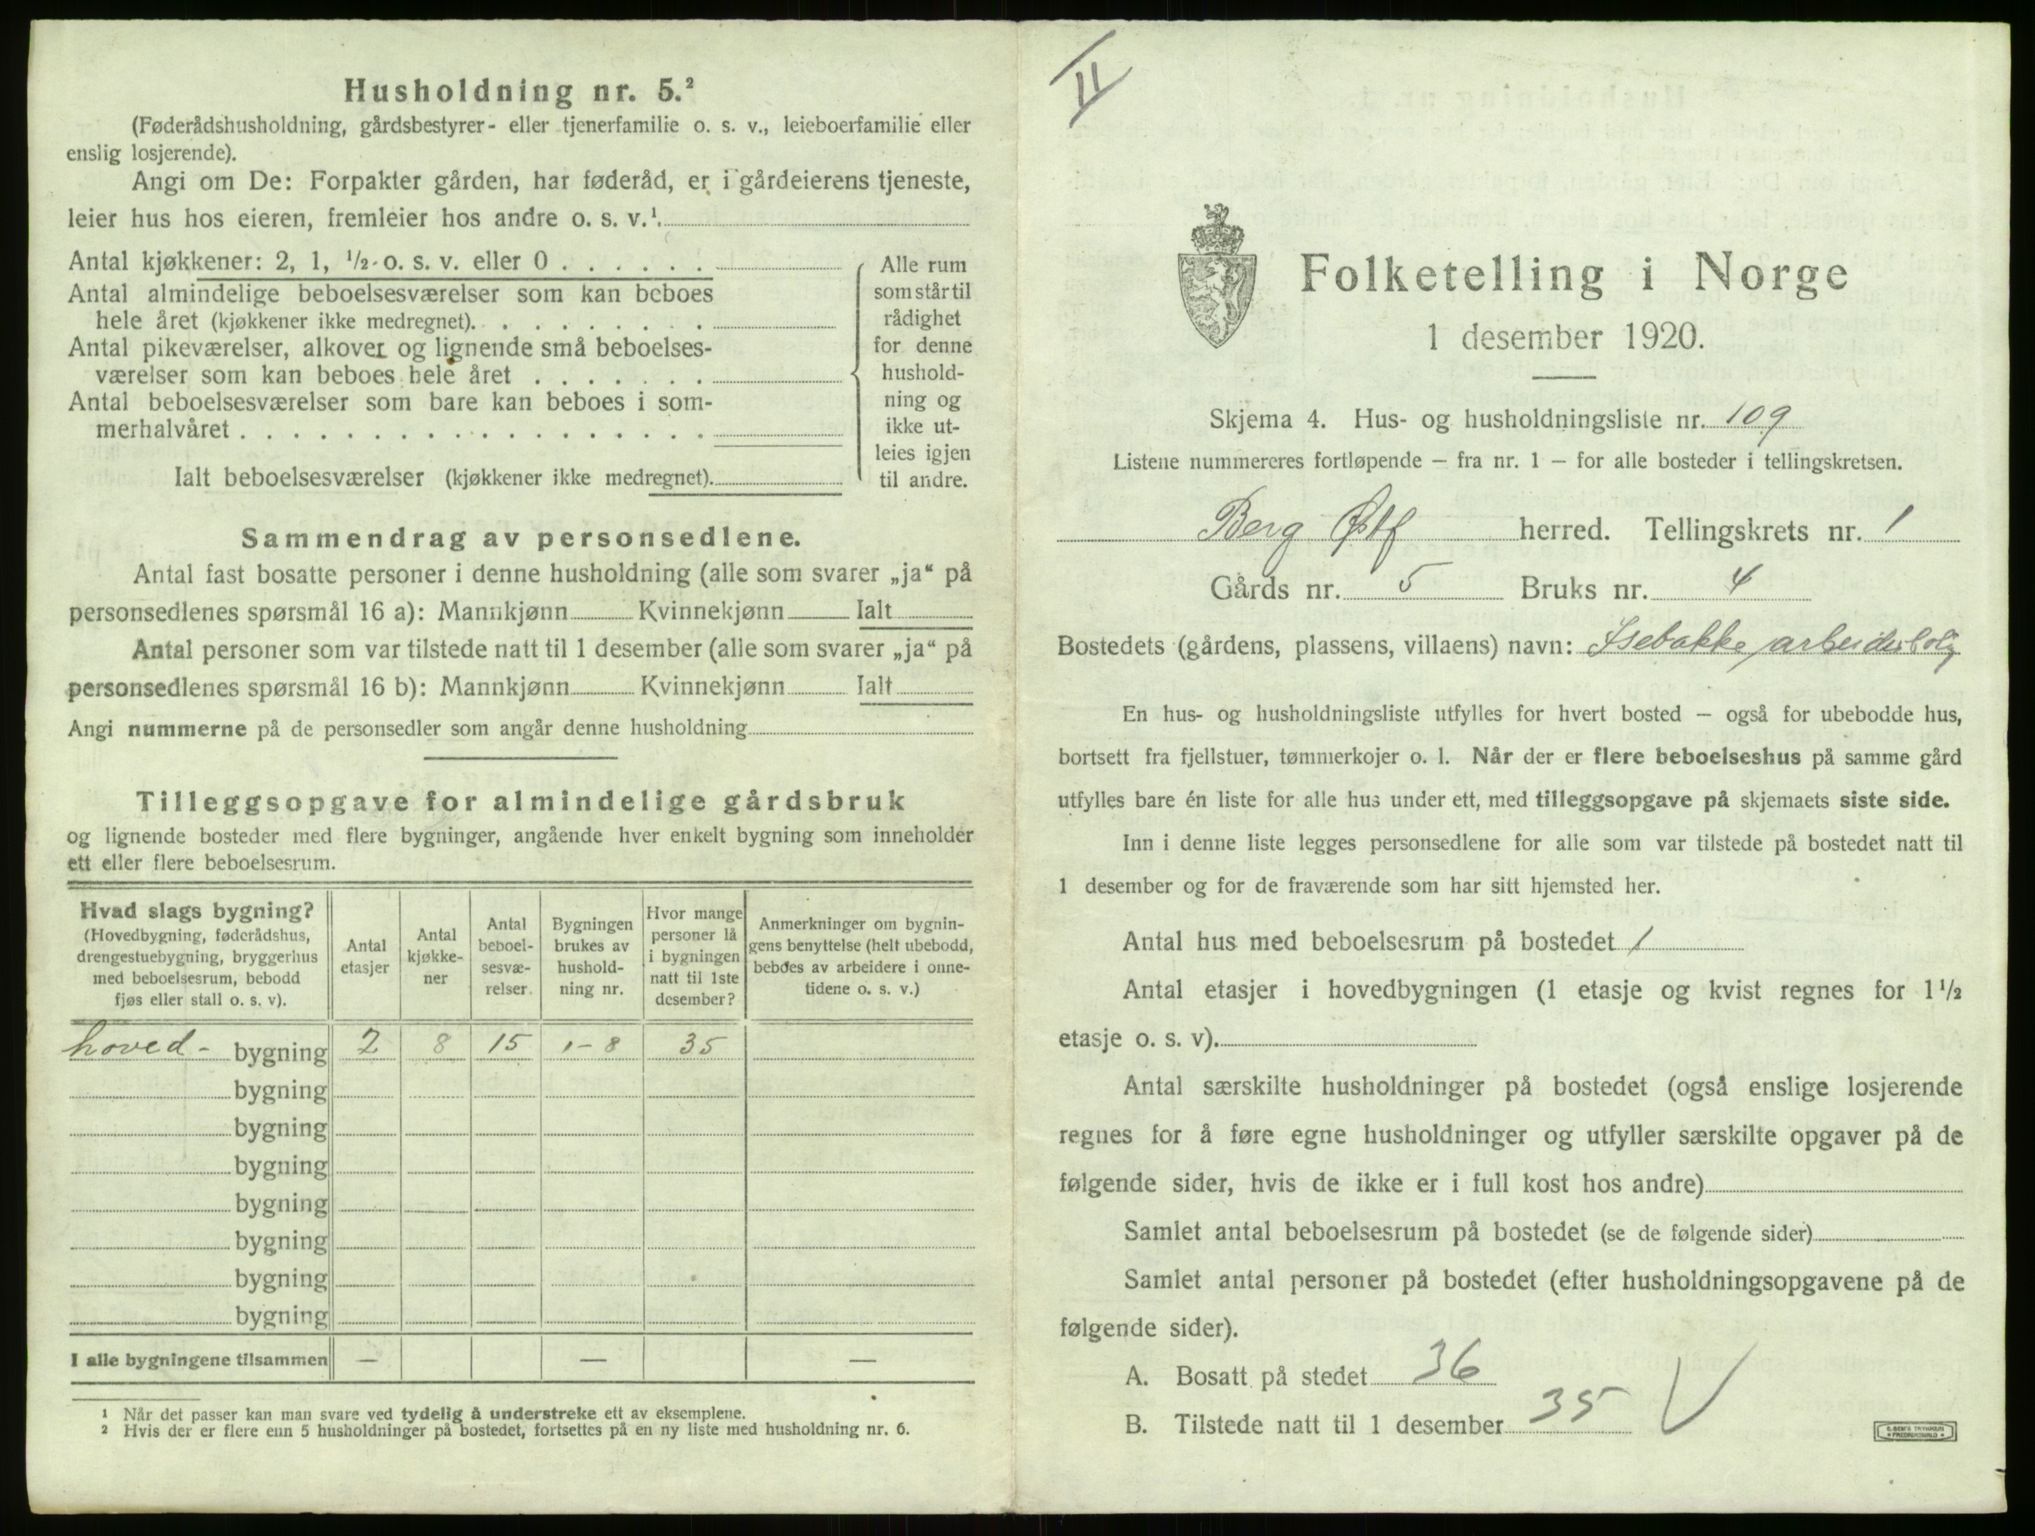 Husholdning nr. 5.²
(Føderådshusholdning, gårdsbestyrer- eller tjenerfamilie o. s. v., leieboerfamilie eller
enslig losjerende).
Angi om De: Forpakter gården, har føderåd, er i gårdeierens tjeneste,
leier hus hos eieren, fremleier hos andre o. s. v.¹.
Antal kjøkkener: 2, 1, ½ o. s. v. eller 0 . . . . . .
Antal almindelige beboelsesværelser som kan beboes
hele året (kjøkkener ikke medregnet). . . . . . . . .
Antal pikeværelser, alkover og lignende små beboelses-
værelser som kan beboes hele året . . . . . . .
Antal beboelsesværelser som bare kan beboes i som-
merhalvåret . . . . . . . . . . . . . . . . . .
Ialt beboelsesværelser (kjøkkener ikke medregnet).
Alle rum
som står til
rådighet
for denne
hushold-
ning og
ikke ut-
leies igjen
til andre.
Sammendrag av personsedlene.
Antal fast bosatte personer i denne husholdning (alle som svarer „ja“ på
personsedlenes spørsmål 16 a): Mannkjønn Kvinnekjønn Ialt
Antal personer som var tilstede natt til 1 desember (alle som svarer „ja“ på
personsedlenes spørsmål 16 b): Mannkjønn Kvinnekjønn Ialt
Angi nummerne på de personsedler som angår denne husholdning
Tilleggsopgave for almindelige gårdsbruk
og lignende bosteder med flere bygninger, angående hver enkelt bygning som inneholder
ett eller flere beboelsesrum.
Hvad slags bygning?
(Hovedbygning, føderådshus,
drengestuebygning, bryggerhus
med beboelsesrum, bebodd
fjøs eller stall o. s. v).
Antal
etasjer
Antal
kjøkke-
ner
Antal
beboel-
sesvæ-
relser
Bygningen
brukes av
hushold-
ning nr.
Hvor mange
personer lå
i bygningen
natt til 1ste
desember?
Anmerkninger om bygnin-
gens benyttelse (helt ubebodd,
beboes av arbeidere i onne-
tidene o. s. v.)
hoved- bygning 2 8 15 1-8 35
bygning
bygning
bygning
bygning
bygning
bygning
bygning
I alle bygningene tilsammen — — —
¹ Når det passer kan man svare ved tydelig å understreke ett av eksemplene.
² Hvis der er flere enn 5 husholdninger på bostedet, fortsettes på en ny liste med husholdning nr. 6.
II
Folketelling i Norge
1 desember 1920.
Skjema 4. Hus- og husholdningsliste nr. 109
Listene nummereres fortløpende – fra nr. 1 – for alle bosteder i tellingskretsen.
Berg Østf herred. Tellingskrets nr. 1
Gårds nr. 5 Bruks nr. 4
Bostedets (gårdens, plassens, villaens) navn: Isebakke arbeiderbolig
En hus- og husholdningsliste utfylles for hvert bosted – også for ubebodde hus,
bortsett fra fjellstuer, tømmerkojer o. l. Når der er flere beboelseshus på samme gård
utfylles bare én liste for alle hus under ett, med tilleggsopgave på skjemaets siste side.
Inn i denne liste legges personsedlene for alle som var tilstede på bostedet natt til
1 desember og for de fraværende som har sitt hjemsted her.
Antal hus med beboelsesrum på bostedet 1
Antal etasjer i hovedbygningen (1 etasje og kvist regnes for 1½
etasje o. s. v).
Antal særskilte husholdninger på bostedet (også enslige losjerende
regnes for å føre egne husholdninger og utfyller særskilte opgaver på de
følgende sider, hvis de ikke er i full kost hos andre)
Samlet antal beboelsesrum på bostedet (se de følgende sider)
Samlet antal personer på bostedet (efter husholdningsopgavene på de
følgende sider).
A. Bosatt på stedet 36
B. Tilstede natt til 1 desember 35 V